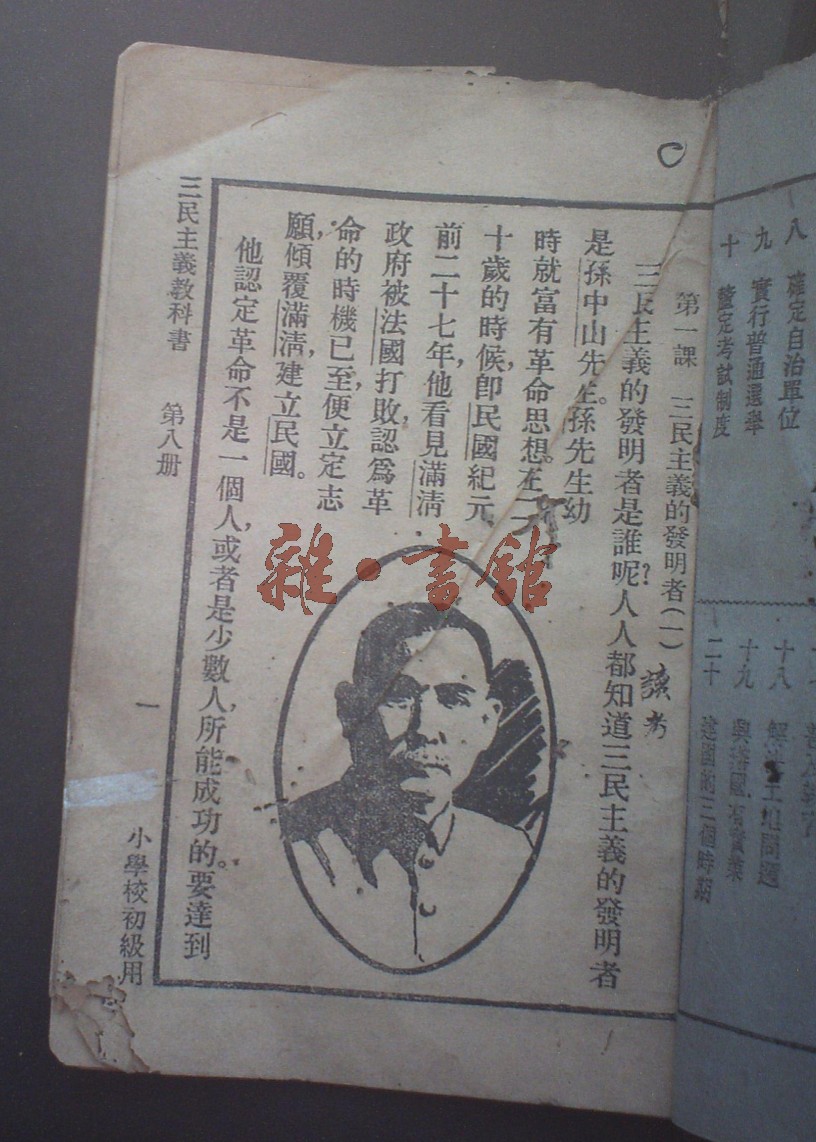 第一課　三民主義的發明者(一)
三民主義的發明者是誰呢?人人都知道三民主義的發明者
是孫中山先生。孫先生幼
時就富有革命思想。在二
十歲的時候,卽民國紀元
前二十七年,他看見滿淸
政府被法國打敗,認爲革
命的時機已至,便立定志
願,傾覆滿淸,建立民國。
他認定革命不是一個人,或者是少數人,所能成功的。要達到
三民主義教科書　第八册　一　小學校初級用
八　確定自治單位
九　實行普通選舉
十　釐定考試制度
十八　解決土地問題
十九　興播國有實業
二十　建國的三個時期
雜·書館